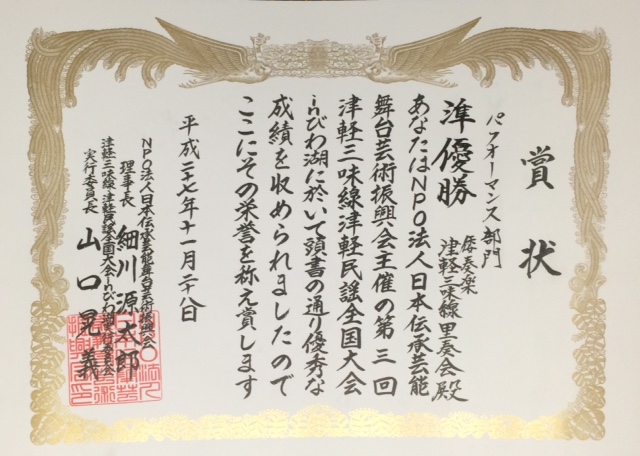 賞状
パフォーマンス部門
準優勝
倭奏楽
津軽三味線里奏会殿
あなたはNPO法人日本伝承芸能
舞台芸術振興会主催の第三回
津軽三味線津軽民謡全国大会
inびわ湖に於いて頭書の通り優秀な
成績を収められましたので
ここにその栄誉を称え賞します
平成二十七年十一月二十八日
NPO法人日本伝承芸能舞台芸術振興会
理事長 細川源太郎
津軽三味線津軽民謡全国大会inびわ湖実行委員会
実行委員長 山口晃義